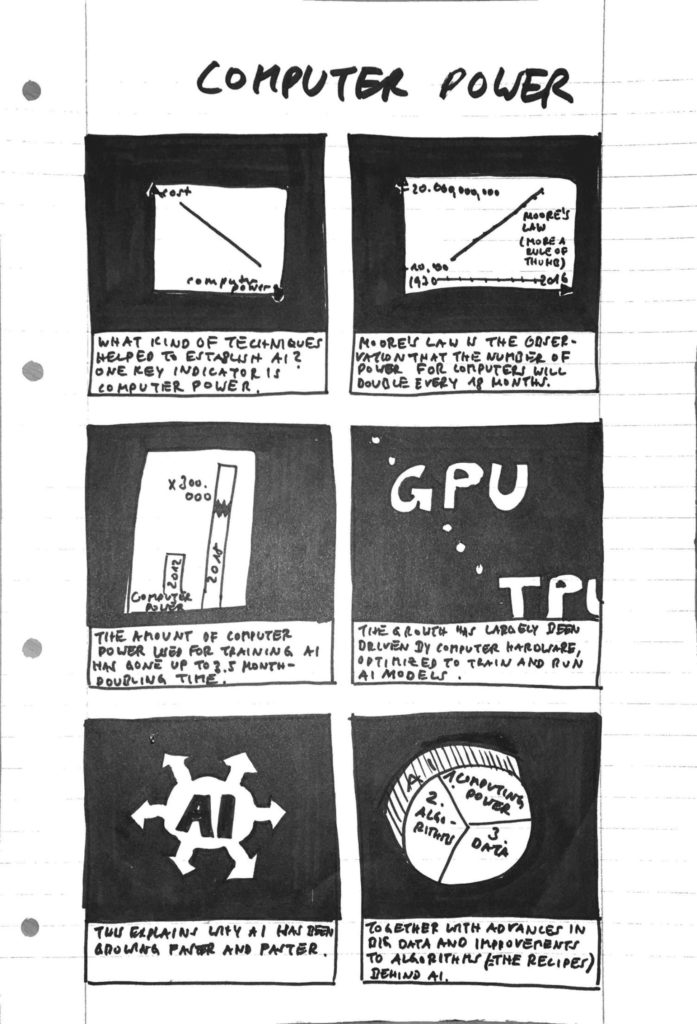 COMPUTER POWER
COST
COMPUTER
POWER
WHAT KIND OF TECHNIQUES
HELPED TO ESTABLISH AI?
ONE KEY INDICATOR IS
COMPUTER POWER.
20.000,000,000
MOORE'S
LAW
(MORE A
RULE OF
THUMB)
10.000
1970
2016
MOORE'S LAW IS THE OBSER-
VATION THAT THE NUMBER OF
POWER FOR COMPUTERS WILL
DOUBLE EVERY 18 MONTHS.
X300.
000
2012
2018
COMPUTER
POWER
THE AMOUNT OF COMPUTER
POWER USED FOR TRAINING AI
HAS GONE UP TO 3.5 MONTH-
DOUBLING TIME.
GPU
TPU
THE GROWTH HAS LARGELY BEEN
DRIVEN BY COMPUTER HARDWARE,
OPTIMIZED TO TRAIN AND RUN
AI MODELS.
AI
THIS EXPLAINS WHY AI HAS BEEN
GROWING FASTER AND FASTER.
1. COMPUTING
POWER
2.
ALGO-
RITHMS
3.
DATA
TOGETHER WITH ADVANCES IN
BIG DATA AND IMPROVEMENTS
TO ALGORITHMS (THE RECIPES)
BEHIND AI.